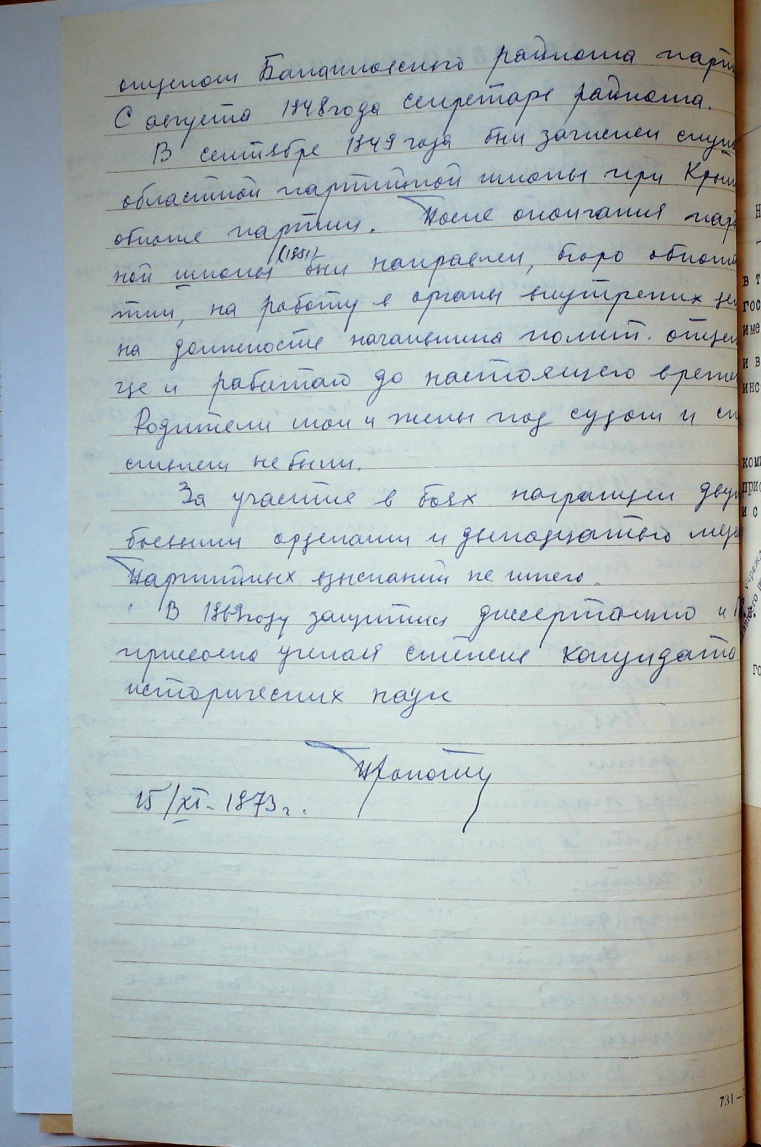 отделом Балаклавского райкома парт
С августа 1948 года секретарь райкома.
В сентябре 1949 года был зачислен слуш
областной партийной школы при Крым
обкоме партии. После окончания пар
ной школы (1951) был направлен, бюро обкома
тии, на работу в органы внутрених де
на должность начальника полит. отде
где и работаю до настоящего време
Родители мои и жены под судом и сл
ствием не были.
За участие в боях награжден двум
боевыми орденами и двенадцатью мед
Партийных взысканий не имею.
В 1969 году защитил диссертацию и
присвоена ученая степень кандидата
исторических наук
15/XI-1973 г.
731-
в т
гос
име
и в
инс
ком
прис
и с
го